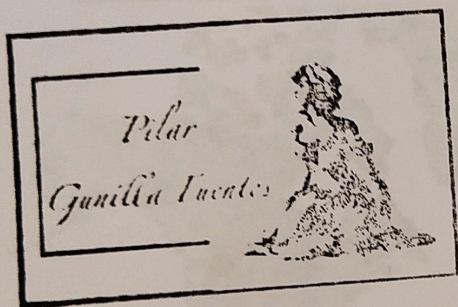 Pilar
Gunilla Fuentes